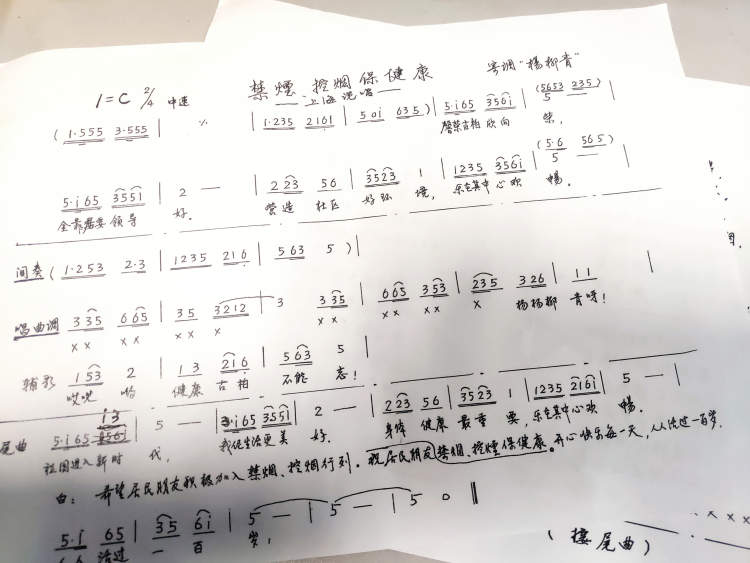 禁煙、控烟保健康
寄调"楊柳青"
—上海说唱—
1=C 2/4 中速
(1·555 3·555 | ٪ | 1·235 2161 | 50i 635) | 5·i65 356i | 5 — |
(5653 235)
馨荣古柏欣向 荣,
5·i65 3551 | 2 — | 223 56 | 3523 1 | 1235 356i | 5 — |
(5·6 565)
全靠居委领导 好。 营造 社区 好环 境, 乐在其中心欢 畅。
间奏 (1·253 2·3 | 1235 216 | 563 5 )|
唱曲调 335 665 | 35 3212 | 3 335 | 665 353 | 235 326 | 11 |
×× ×× × × ×× ×× ×× × 杨杨柳 青呀!
辅形 153 2 | 13 216 | 563 5 |
哎呀 哈 健康 古柏 不能 忘!
i3
尾曲 5·i65 | 5 — | 3·i65 3551 | 2 — | 223 56 | 3523 1 | 1235 216i | 5 — |
祖国进入新时 代, 我伲生活更美 好。 身体 健康 最重 要, 乐在其中心欢 畅。
白: 希望居民朋友积极加入禁烟、控烟行列。祝居民朋友禁烟、控煙保健康。开心快乐每一天,人人活过一百岁。
5·i 65 | 35 6i | 5 — | 5 — | 5 0 ‖
活过 一 百 岁,
(接尾曲)
×××